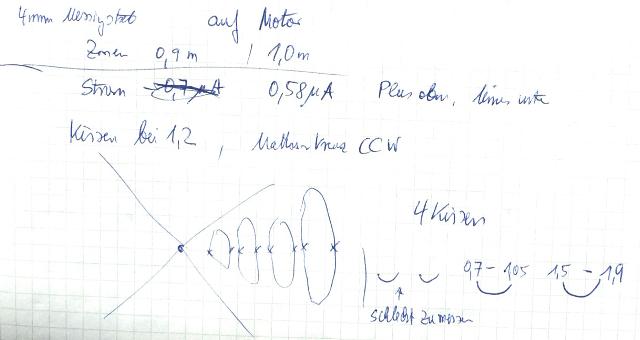 4mm Messingstab auf Motor
Zonen 0,9 m | 1,0 m
Strom 0,7 µA 0,58 µA Plus oben, Minus unten
Kissen bei 1,2 , CCW
4 Kissen
0,7 - 1,05 1,5 - 1,9
schlecht zu messen